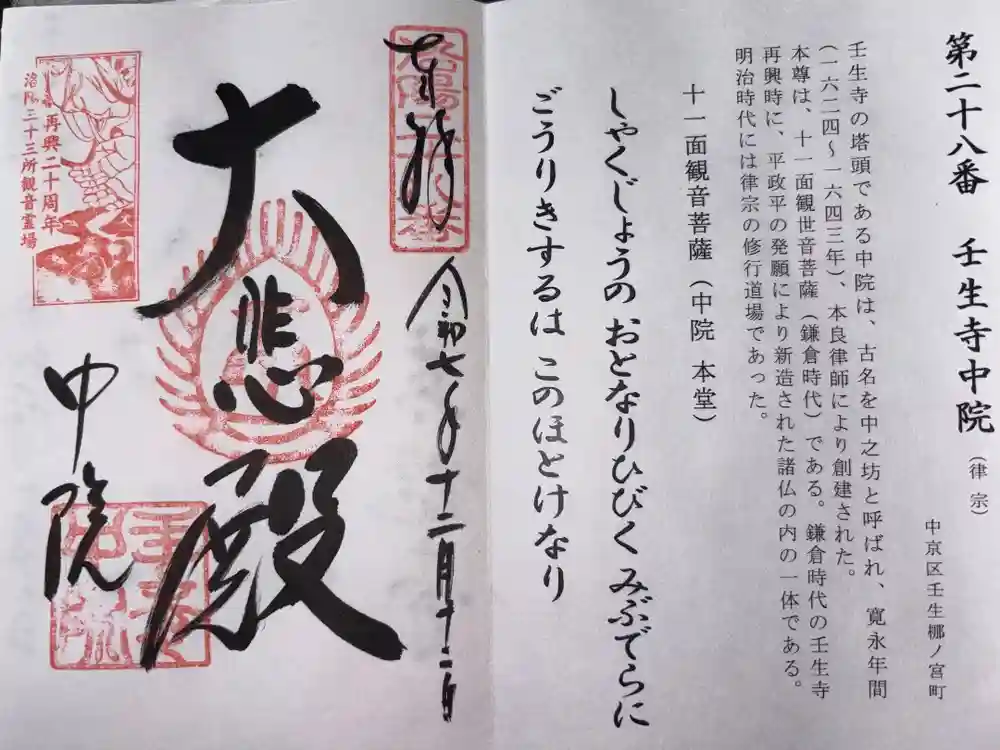 第二十八番 壬生寺中院（律宗）
中京区壬生梛ノ宮町
壬生寺の塔頭である中院は、古名を中之坊と呼ばれ、寛永年間
（一六二四～一六四三年）、本良律師により創建された。
本尊は、十一面観世音菩薩（鎌倉時代）である。鎌倉時代の壬生寺
再興時に、平政平の発願により新造された諸仏の内の一体である。
明治時代には律宗の修行道場であった。
十一面観音菩薩（中院 本堂）
しゃくじょうの おとなりひびく みぶでらに
ごうりきするは このほとけなり
奉拝
令和七年十二月十二日
大悲殿
中院
再興二十周年
洛陽三十三所観音霊場